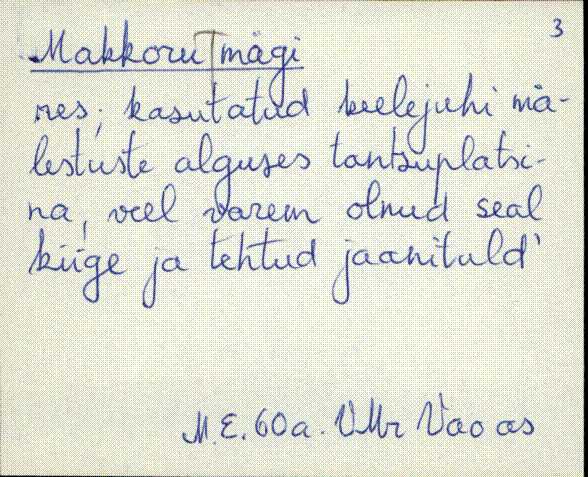 3
Makkoru mägi
nes; kasutatud keelejuhi mä-
lestuste alguses tantsuplatsi-
na, veel varem olnud seal
kiige ja tehtud jaanituld'
M.E. 60a. VMr Vao as